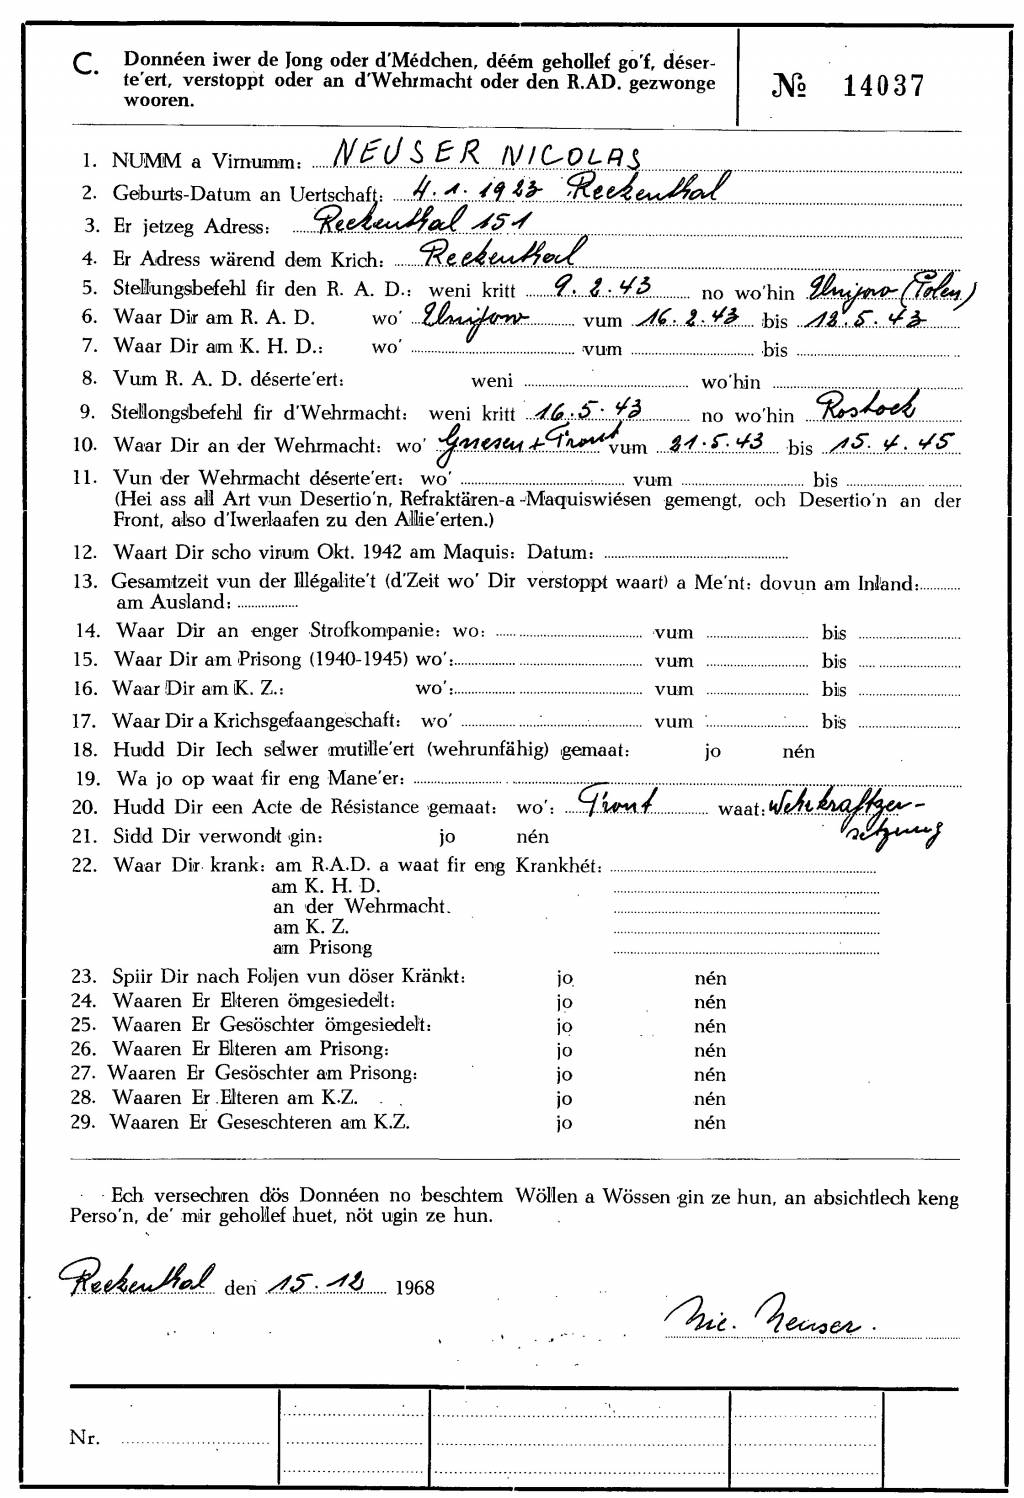 C. Donnéen iwer de Jong oder d'Médchen, déém gehollef go'f, déser-
te'ert, verstoppt oder an d'Wehrmacht oder den R.AD. gezwonge
wooren.
№ 14037
1. NUMM a Virnumm: NEUSER NICOLAS
2. Geburts-Datum an Uertschaft: 4.1.1923 Reckenthal
3. Er jetzeg Adress: Reckenthal 151
4. Er Adress wärend dem Krich: Reckenthal
5. Stellungsbefehl fir den R. A. D.: weni kritt 9.2.43 no wo'hin (Polen)
6. Waar Dir am R. A. D. wo' vum 16.2.43 bis 12.5.43
7. Waar Dir am K. H. D.: wo' vum bis
8. Vum R. A. D. déserte'ert: weni wo'hin
9. Stellongsbefehl fir d'Wehrmacht: weni kritt 16.5.43 no wo'hin Rostock
10. Waar Dir an der Wehrmacht: wo' Gnesen + Front vum 21.5.43 bis 15.4.45
11. Vun der Wehrmacht déserte'ert: wo' vum bis
(Hei ass all Art vun Desertio'n, Refraktären-a-Maquiswiésen gemengt, och Desertio'n an der
Front, also d'Iwerlaafen zu den Allie'erten.)
12. Waart Dir scho virum Okt. 1942 am Maquis: Datum:
13. Gesamtzeit vun der Illégalite't (d'Zeit wo' Dir verstoppt waart) a Me'nt: dovun am Inland:
am Ausland:
14. Waar Dir an enger Strofkompanie: wo: vum bis
15. Waar Dir am Prisong (1940-1945) wo': vum bis
16. Waar Dir am K. Z.: wo': vum bis
17. Waar Dir a Krichsgefaangeschaft: wo' vum bis
18. Hudd Dir Iech selwer mutille'ert (wehrunfähig) gemaat: jo nén
19. Wa jo op waat fir eng Mane'er:
20. Hudd Dir een Acte de Résistance gemaat: wo': Front waat: Wehrkraftzer-
setzung
21. Sidd Dir verwondt gin: jo nén
22. Waar Dir krank: am R.A.D. a waat fir eng Krankhét:
am K. H. D.
an der Wehrmacht.
am K. Z.
am Prisong
23. Spiir Dir nach Foljen vun döser Kränkt: jo nén
24. Waaren Er Elteren ömgesiedelt: jo nén
25. Waaren Er Gesöschter ömgesiedelt: jo nén
26. Waaren Er Elteren am Prisong: jo nén
27. Waaren Er Gesöschter am Prisong: jo nén
28. Waaren Er Elteren am K.Z. jo nén
29. Waaren Er Geseschteren am K.Z. jo nén
Ech versechren dös Donnéen no beschtem Wöllen a Wössen gin ze hun, an absichtlech keng
Perso'n, de' mir gehollef huet, nöt ugin ze hun.
Reckenthal den 15.12 1968
Nic. Neuser.
Nr.